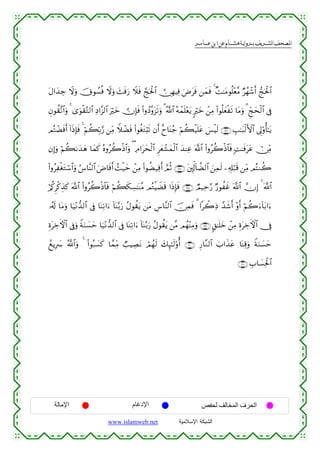 المصحف الشريف برواية هشام عن ابن عامر
ٱلْحَجُّ أَشْهُرٌ مَّعْلُومَٰتٌ ۚ فَمَن فَرَضَ فِيهِنَّ ٱلْحَجَّ فَلَا رَفَثَ وَلَا فُسُوقَ وَلَا جِدَالَ
فِى ٱلْحَجِّ ۗ وَمَا تَفْعَلُوا۟ مِنْ خَيْرٍ يَعْلَمْهُ ٱللَّهُ ۗ وَتَزَوَّدُوا۟ فَإِنَّ خَيْرَ ٱلزَّادِ ٱلتَّقْوَىٰ ۚ وَٱتَّقُونِ
يَٰٓأُو۟لِى ٱلْأَلْبَٰبِ لَيْسَ عَلَيْكُمْ جُنَاحٌ أَن تَبْتَغُوا۟ فَضْلًا مِّن رَّبِّكُمْ ۚ فَإِذَآ أَفَضْتُم
مِّنْ عَرَفَٰتٍ فَٱذْكُرُوا۟ ٱللَّهَ عِندَ ٱلْمَشْعَرِ ٱلْحَرَامِ ۖ وَٱذْكُرُوهُ كَمَا هَدَىٰكُمْ وَإِن
كُنتُم مِّن قَبْلِهِۦ لَمِنَ ٱلضَّآلِّينَ ثُمَّ أَفِيضُوا۟ مِنْ حَيْثُ أَفَاضَ ٱلنَّاسُ وَٱسْتَغْفِرُوا۟
ٱللَّهَ ۚ إِنَّ ٱللَّهَ غَفُورٌ رَّحِيمٌ فَإِذَا قَضَيْتُم مَّنَٰسِكَكُمْ فَٱذْكُرُوا۟ ٱللَّهَ كَذِكْرِكُمْ
ءَابَآءَكُمْ أَوْ أَشَدَّ ذِكْرًا ۗ فَمِنَ ٱلنَّاسِ مَن يَقُولُ رَبَّنَآ ءَاتِنَا فِى ٱلدُّنْيَا وَمَا لَهُۥ
فِى ٱلْءَاخِرَةِ مِنْ خَلَٰقٍ وَمِنْهُم مَّن يَقُولُ رَبَّنَآ ءَاتِنَا فِى ٱلدُّنْيَا حَسَنَةً وَفِى ٱلْءَاخِرَةِ
حَسَنَةً وَقِنَا عَذَابَ ٱلنَّارِ أُو۟لَٰٓئِكَ لَهُمْ نَصِيبٌ مِّمَّا كَسَبُوا۟ ۚ وَٱللَّهُ سَرِيعُ
ٱلْحِسَابِ
الحرف المخالف لحفص الإدغام الإمالة
الشبكة الإسلامية www.islamweb.net